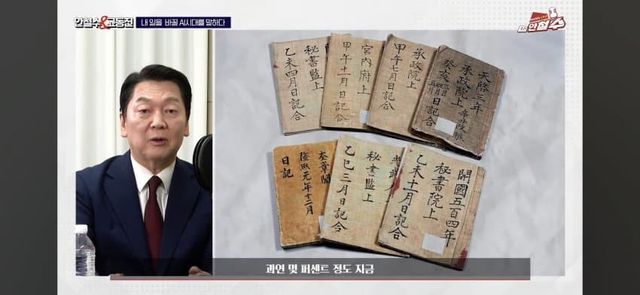 안철수&고동진 내 일을 바꿀 AI시대를 말하다
안철수
秘書監上
乙未四月日記合
宮內府上
甲午十一月日記合
承政院上
甲午七月日記合
天啓三年
承政院上
癸亥
日記合
奎章閣
隆熙元年十二月
日記
秘書監上
乙巳三月日記合
開國五百四年
秘書院上
乙未十一月日記合
과연 몇 퍼센트 정도 지금